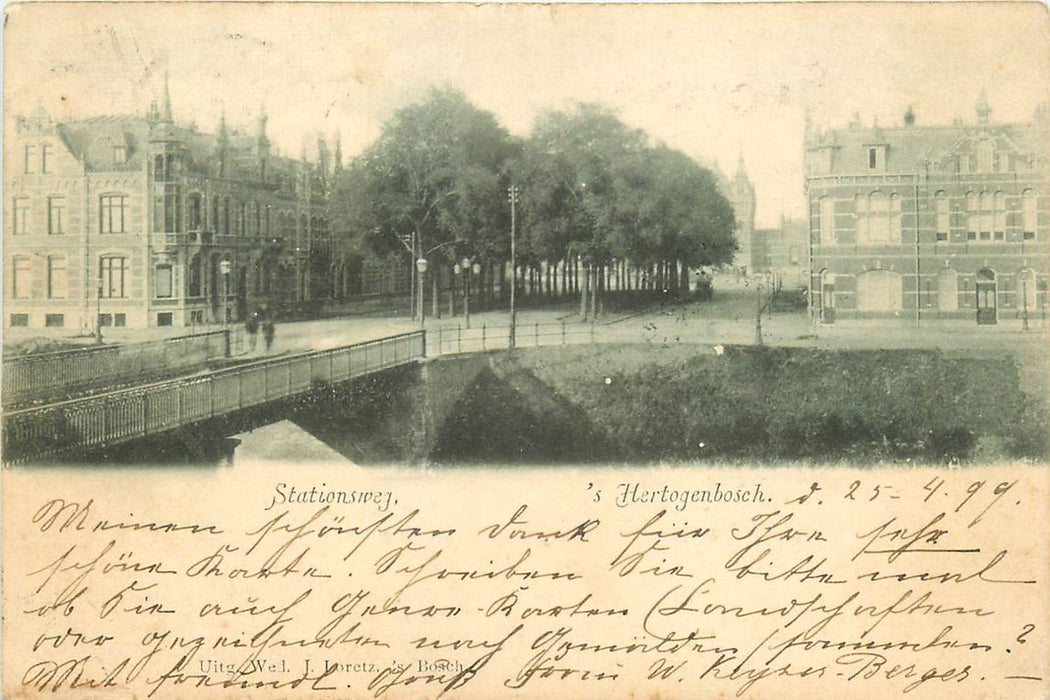 Stationsweg, 's Hertogenbosch. d. 25-4.99.
Meinen schönsten Dank für Ihre sehr
schöne Karte. Schreiben Sie bitte mal
ob Sie auch Genre-Karten (Landschaften
oder gezeichneten nach Gemälden) sammeln?
Uitg. Wed. J. Loretz, 's Bosch.
Mit freundl. Gruß Frau W. Keyzer-Berger. —